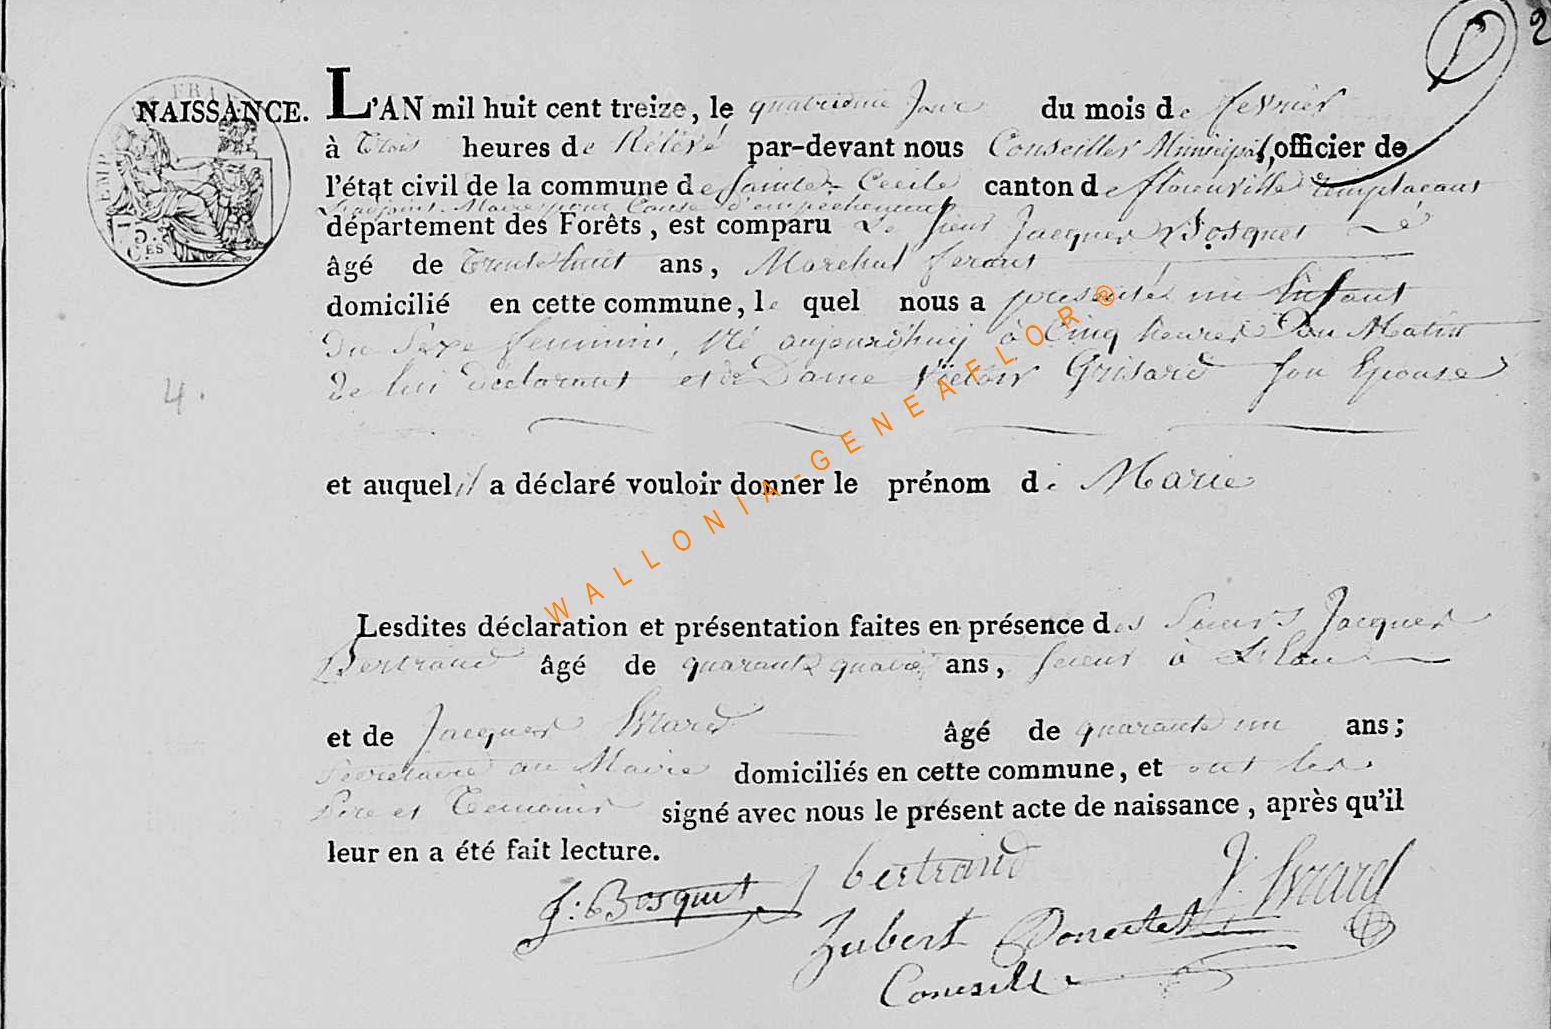 2
NAISSANCE. L'AN mil huit cent treize, le quatrieme jour du mois de fevrier
à trois heures de Rélévé par-devant nous Conseiller Municipal, officier de
l'état civil de la commune de Sainte-Cecile canton de florenville remplacant
l'adjoint-Maire pour Cause d'empechement
département des Forêts, est comparu Le sieur Jacques Bosquet
âgé de trente huit ans, Marechal ferant
domicilié en cette commune, le quel nous a presenté un Enfant
du Sexe feminin, Né aujourd'huij à Cinq heures du Matin
de lui déclarant et de Dame Victoir Grisard son Epouse
4.
et auquel il a déclaré vouloir donner le prénom de Marie
Lesdites déclaration et présentation faites en présence des Sieurs Jacques
Bertrand âgé de quarante quatre ans, scieur à
et de Jacques Evrard âgé de quarante un ans;
Secretaire au Maire domiciliés en cette commune, et ont les
Pere et Temoins signé avec nous le présent acte de naissance, après qu'il
leur en a été fait lecture.
J: Bosquet J bertrand J: Evrard
hubert
Conseill
EMP
FRAN
75
CES
WALLONIA-GENEAFLOR®